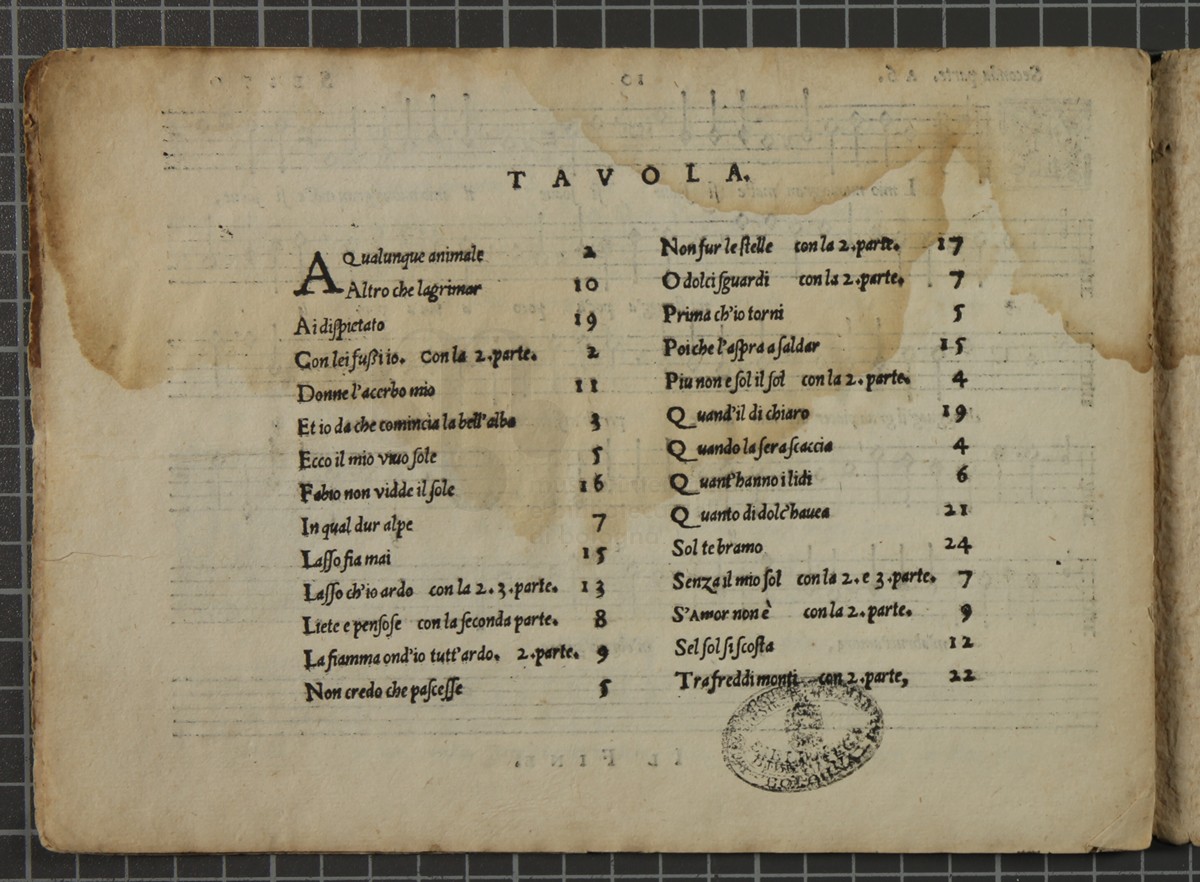 TAVOLA.
A Qualunque animale 2
Altro che lagrimar 10
Ai dispietato 19
Con lei fussi io. Con la 2. parte. 2
Donne l'acerbo mio 11
Et io da che comincia la bell'alba 3
Ecco il mio viuo sole 5
Fabio non vidde il sole 16
In qual dur alpe 7
Lasso fia mai 15
Lasso ch'io ardo con la 2. 3. parte. 13
Liete e pensose con la seconda parte. 8
La fiamma ond'io tutt'ardo. 2. parte. 9
Non credo che pascesse 5
Non fur le stelle con la 2. parte. 17
O dolci sguardi con la 2. parte. 7
Prima ch'io torni 5
Poi che l'aspra a saldar 15
Piu non e sol il sol con la 2. parte. 4
Quand'il di chiaro 19
Quando la sera scaccia 4
Quant'hanno i lidi 6
Quanto di dolc'hauea 21
Sol te bramo 24
Senza il mio sol con la 2. e 3. parte. 7
S'Amor non è con la 2. parte. 9
Se'l sol si scosta 12
Tra freddi monti con 2. parte, 22
BOLOGNA